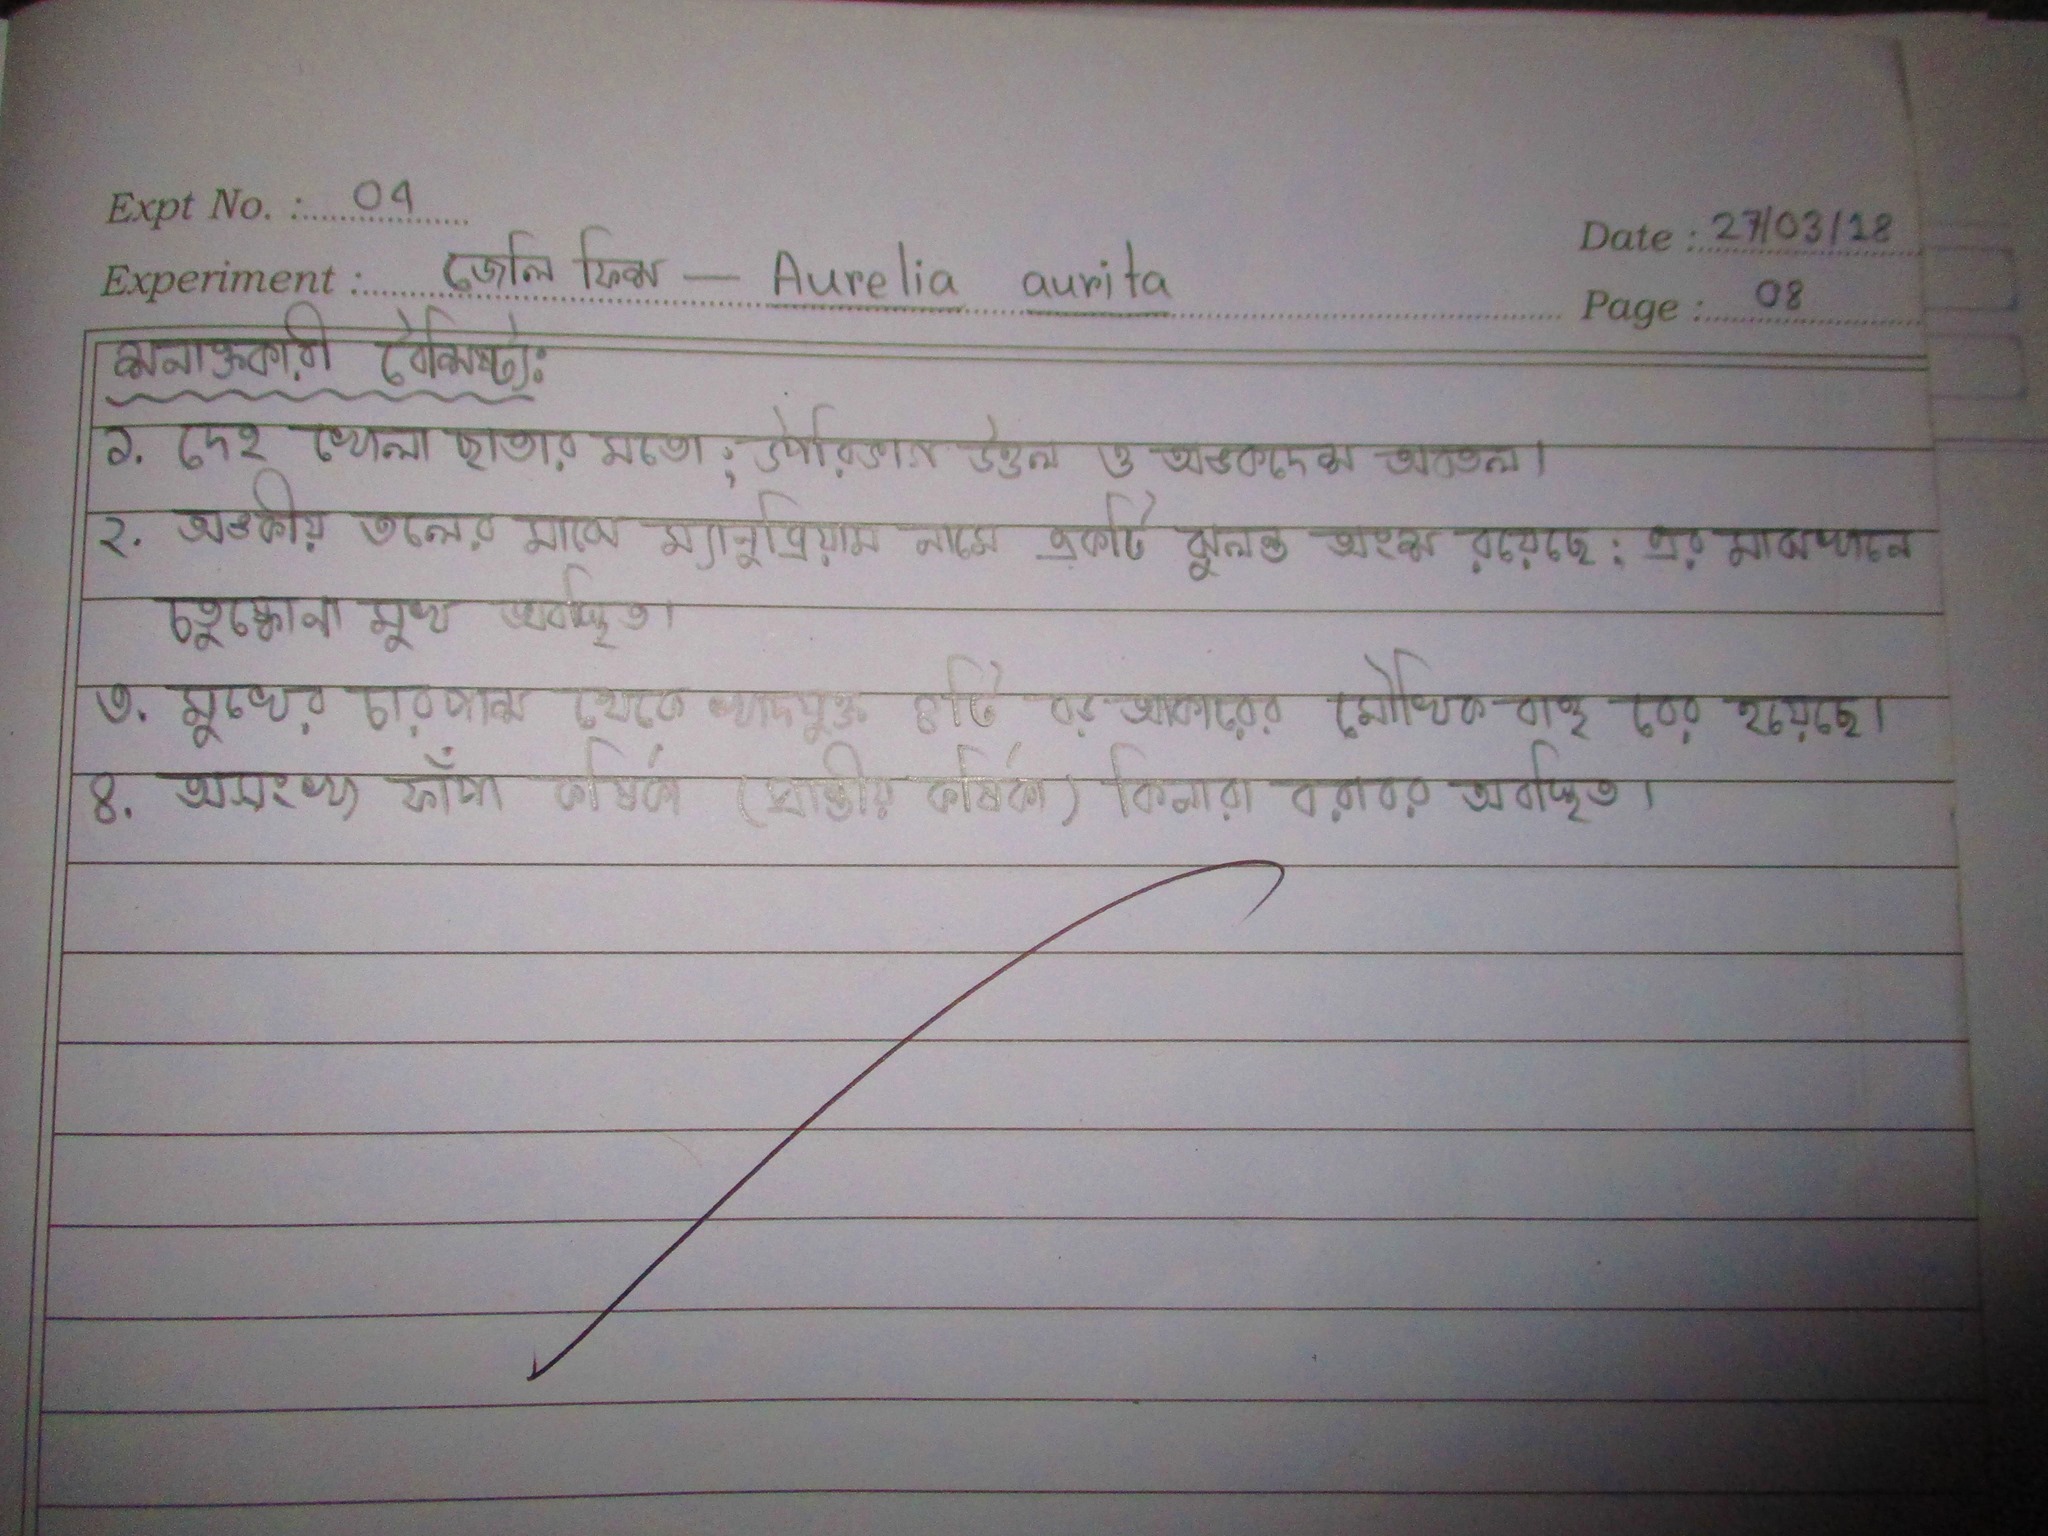 Expt No. : 04
Date : 27/03/18
Experiment : জেলি ফিশ — Aurelia aurita
Page : 08
শনাক্তকারী বৈশিষ্ট্য:
১. দেহ খোলা ছাতার মতো; উপরিভাগ উত্তল ও অঙ্কদেশ অবতল।
২. অঙ্কীয় তলের মাঝে ম্যানুব্রিয়াম নামে একটি ঝুলন্ত অংশ রয়েছে; এর মাঝখানে
চতুষ্কোনা মুখ অবস্থিত।
৩. মুখের চারপাশ থেকে খাদযুক্ত ৪টি বড় আকারের মৌখিক বাহু বের হয়েছে।
৪. অসংখ্য ফাঁপা কর্ষিকা (প্রান্তীয় কর্ষিকা) কিনারা বরাবর অবস্থিত।